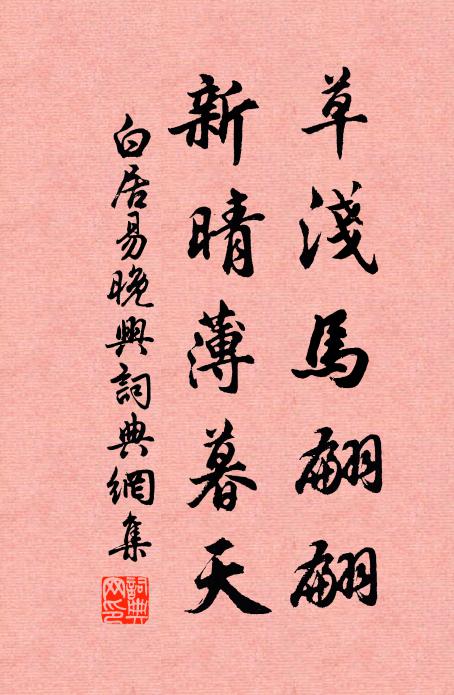 草淺馬翩翩
新晴薄暮天
白居易晚興詞典網集
詞典网印